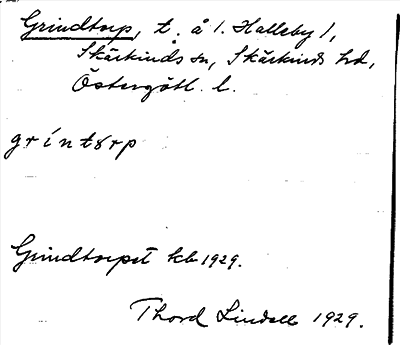 Grindtorp, t. å l. Halleby l,
Skärkinds sn, Skärkinds hd,
Östergötl. l.
gríntórp
Grindtorpet kb 1929.
Thord Lindell 1929.